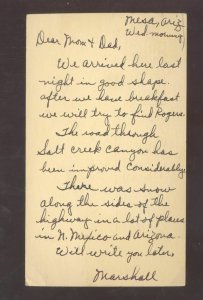 Mesa, Ariz
Wed morning,
Dear Mom & Dad,
We arrived here last
night in good shape
after we have breakfast
we will try to find Rogers.
The road through
Salt creek canyon has
been improved considerably.
There was snow
along the sides of the
highway in a lot of places
in N. Mexico and Arizona.
Will write you later,
Marshall